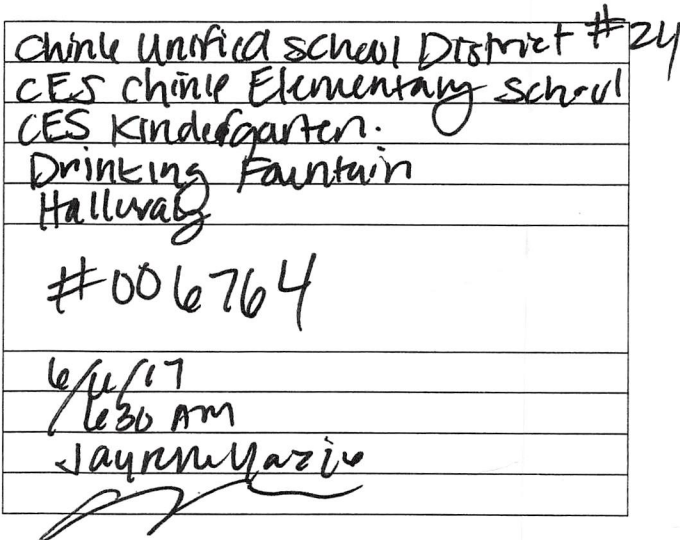 Chinle Unified School District #24
CES Chinle Elementary School
CES Kindergarten.
Drinking Fountain
Hallway
#006764
6/6/17
630 AM
Yazzie